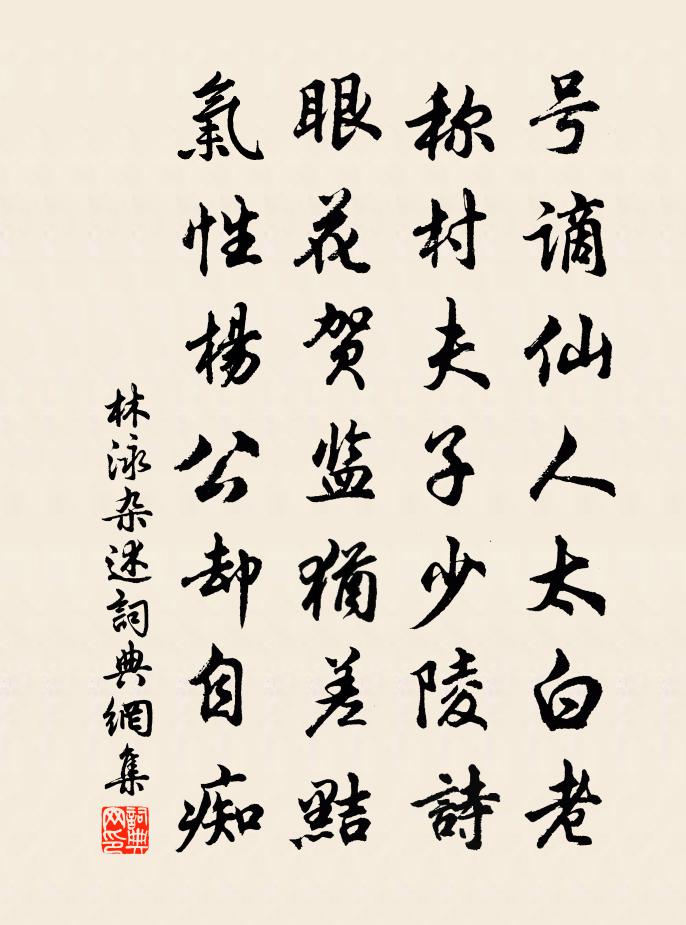 号谪仙人太白老
称村夫子少陵詩
眼花贺监猶差點
氣性楊公却自痴
林泳杂述詞典網集
詞典网印